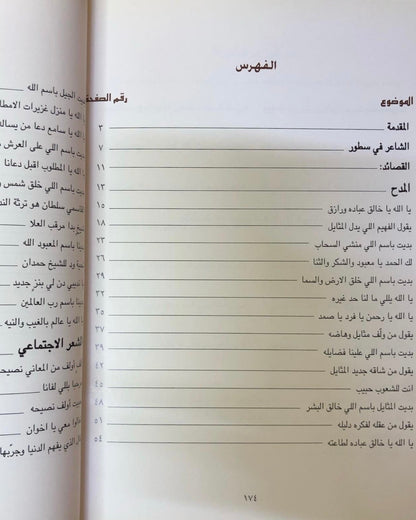 الفهرس
الموضوع رقم الصفحة
المقدمة ٣
الشاعر في سطور ٧
القصائد: ١١
المدح ١٣
يا الله يا خالق عباده ورازق ١٥
يقول الفهيم اللي يدل المثايل ١٨
بديت باسم اللي منشي السحاب ٢٣
لك الحمد يا معبود والشكر والثنا ٢٦
بديت باسم اللي خلق الارض والسما ٢٩
يا الله بللي ما لنا حد غيره ٣٢
يا الله يا رحمن يا فرد يا صمد ٣٥
يقول من ولّف مثايل وهاضه ٣٧
بديت باسم اللي علينا فضايله ٣٩
يقول من شاقه جديد المثايل ٤٢
انت للشعوب حبيب ٤٥
بديت المثايل باسم اللي خالق البشر ٤٨
يقول من عقله لفكره دليله ٥١
يا الله يا خالق عباده لطاعته ٥٤
١٧٤
بديت الجيل باسم الله
الله يا منزل غزيرات الامطا
الله يا سامع دعا من يساله
بديت باسم اللي على العرش
الله يا المطلوب اقبل دعانا
بديت باسم اللي خلق شمس و
القاسمي سلطان هو ترثة الند
بدا مرقب العلا
باسم المعبود الله
ود للشيخ حمدان
دن لي بنز جديد
باسم رب العالمين
الله يا عالم بالغيب والنيه
الشعر الاجتماعي
أولف من المعاني نصيحة
يللي لفانا
أولف نصيحه
معي يا اخوان
الذي يفهم الدنيا وجرّبها